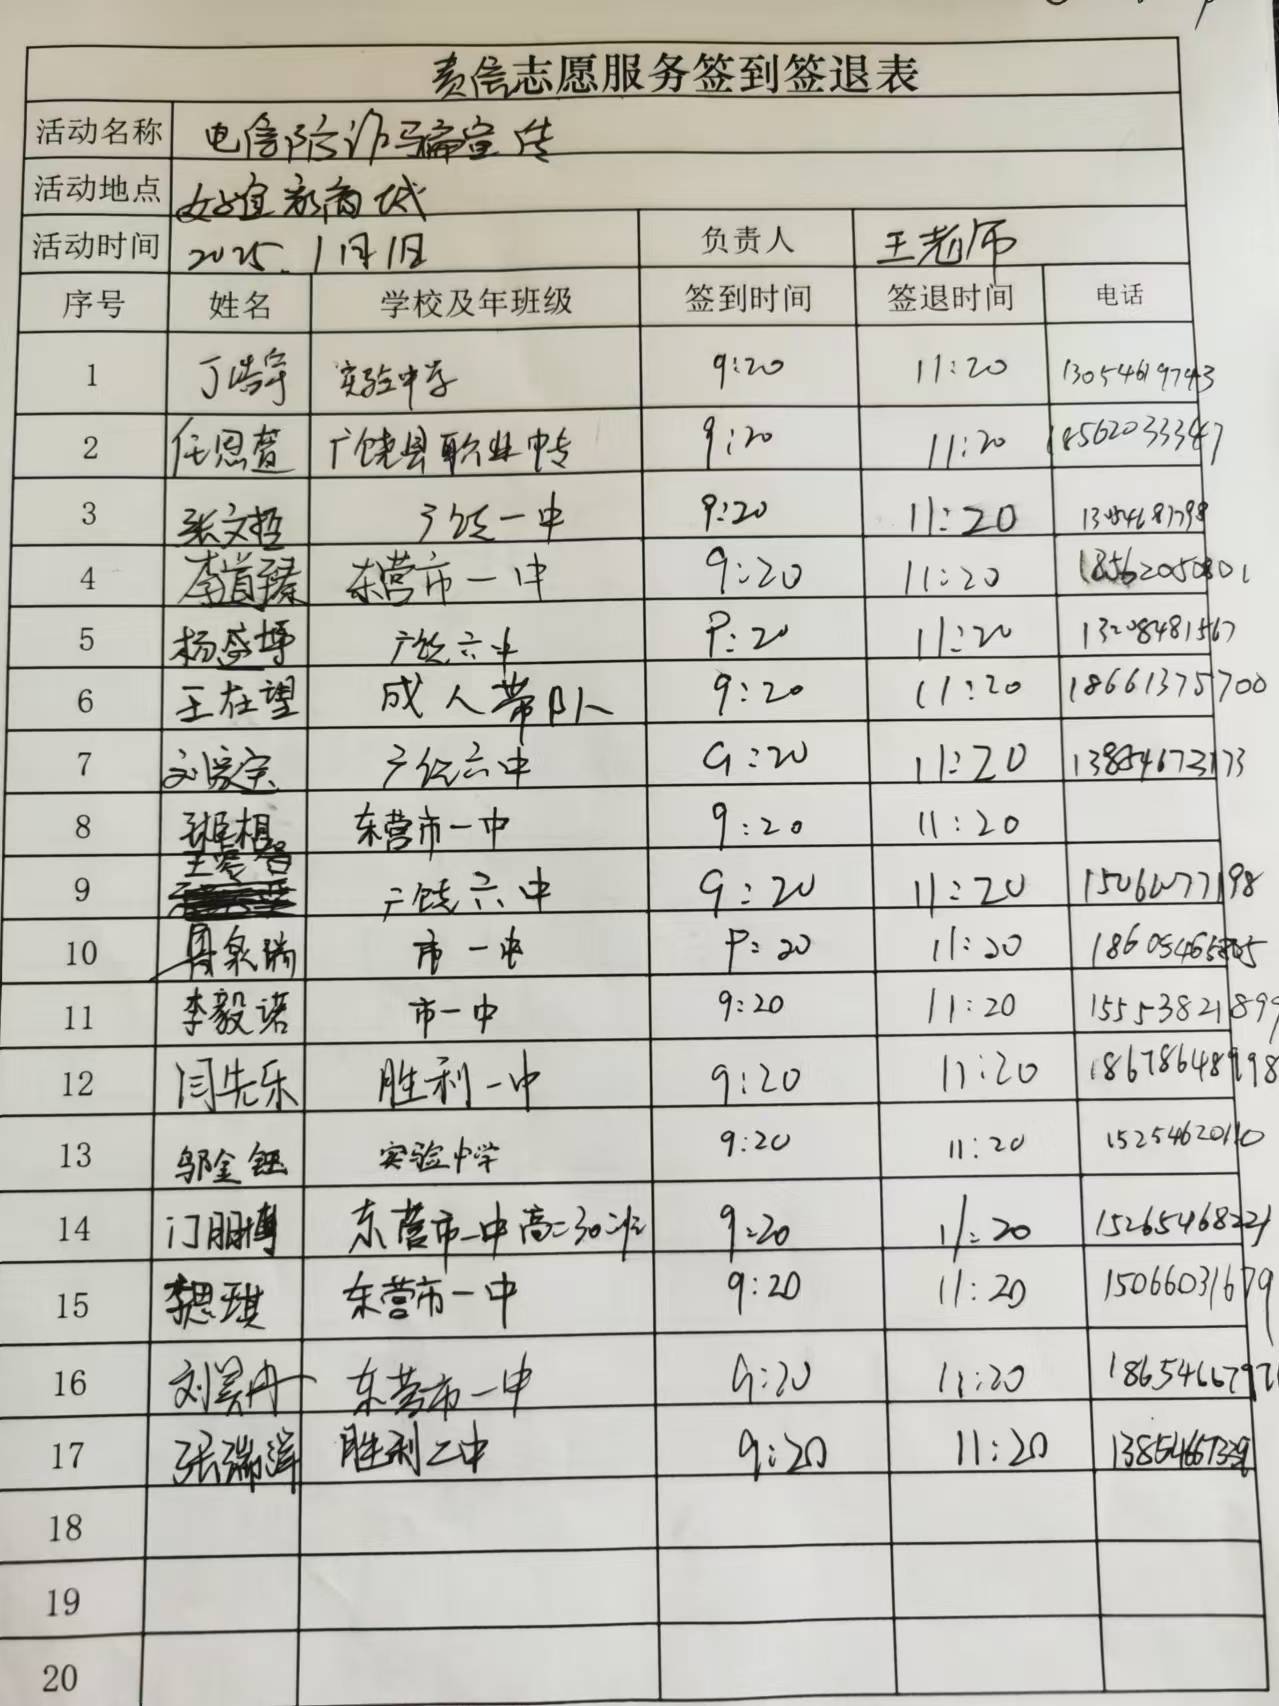 责信志愿服务签到签退表
活动名称 电信防诈骗宣传
活动地点 好宜家商城
活动时间 2025.1月1日 负责人 王老师
序号 姓名 学校及年班级 签到时间 签退时间 电话
1 丁浩宇 实验中学 9:20 11:20 13054619743
2 任恩萱 广饶县职业中专 9:20 11:20 18562033347
3 张文哲 广饶一中 9:20 11:20
4 李首臻 东营市一中 9:20 11:20 18562050801
5 杨盛博 广饶六中 9:20 11:20 13208481567
6 王在望 成人带队 9:20 11:20 18661375700
7 刘 广饶六中 9:20 11:20 13854673173
8 东营市一中 9:20 11:20
9 王 广饶六中 9:20 11:20
10 市一中 9:20 11:20
11 李毅诺 市一中 9:20 11:20 15553821899
12 闫先乐 胜利一中 9:20 11:20 18678648998
13 邬金钰 实验中学 9:20 11:20 15254620110
14 门朋博 东营市一中高二30班 9:20 11:20 15265468221
15 李思琪 东营市一中 9:20 11:20 15066031679
16 刘昊冉 东营市一中 9:20 11:20
17 张瑞泽 胜利二中 9:20 11:20
18
19
20